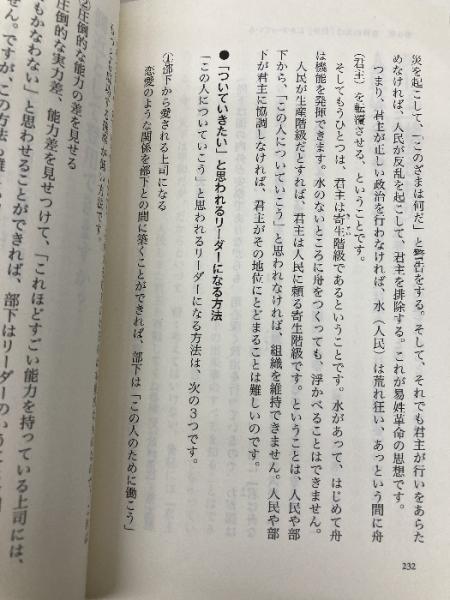 災を起こして、「このざまは何だ」と警告をする。そして、それでも君主が行いをあらた
めなければ、人民が反乱を起こして、君主を排除する。これが易姓革命の思想です。
つまり、君主が正しい政治を行わなければ、水（人民）は荒れ狂い、あっという間に舟
（君主）を転覆させる、ということです。
そしてもうひとつは、君主は寄生階級であるということです。水があって、はじめて舟
は機能を発揮できます。水のないところに舟をつくっても、浮かべることはできません。
人民が生産階級だとすれば、君主は人民に頼る寄生階級です。ということは、人民や部
下から、「この人についていこう」と思われなければ、組織を維持できません。人民や部
下が君主に協調しなければ、君主がその地位にとどまることは難しいのです。
●「ついていきたい」と思われるリーダーになる方法
「この人についていこう」と思われるリーダーになる方法は、次の3つです。
①部下から愛される上司になる
恋愛のような関係を部下との間に築くことができれば、部下は「この人のために働こう」
②圧倒的な能力の差を見せる
圧倒的な実力差、能力差を見せつけて、「これほどすごい能力を持っている上司には、
もかなわない」と思わせることができれば、部下はリーダーのいうこと
せん。ですが、この方法
232